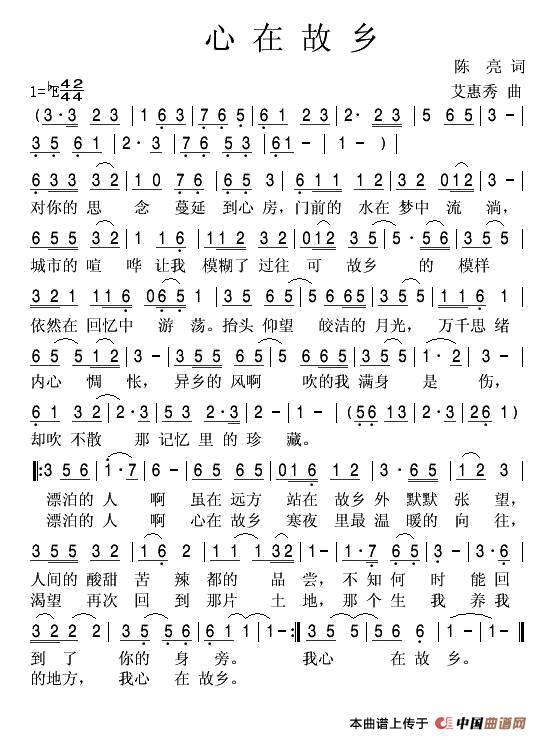 心在故乡
陈 亮 词
1=♭E 42/44
艾惠秀 曲
(3·3 23 | 163 | 765 | 61 23 | 765 | 65 | 3- |
35 61 | 2·3 | 76 53 | 61- | 1- ) |
633 32 | 10 76 | 765 | 611 12 | 32 012 | 3- |
对你的 思 念 蔓延 到心房，门前的 水在梦中 流 淌，
655 32 | 1 16 | 112 32 | 012 35 | 5·56 | 35 |
城市的 喧 哗 让我 模糊了 过往 可 故乡 的 模样
321 | 116 065 | 1235 | 5665 | 35 65 | 3512 |
依然在 回忆中 游 荡。抬头 仰望 皎洁的 月光， 万千思 绪
65 512 | 3- | 355 65 | 1235 | 2·321 | 2- |
内心 惆 怅， 异乡的 风啊 吹的我 满身 是 伤，
61 23 | 5·3 52 | 2·3 | 2- | 1- | (56 13 | 2·3 | 26 1) |
却吹 不散 那 记忆 里 的 珍 藏。
‖:356 | 1·76 | 6- | 355 65 | 016 12 | 3·3 65 | 3- |
漂泊的 人 啊 虽在 远方 站在 故乡 外 默默 张 望，
漂泊的 人 啊 心在 故乡 寒夜 里最 温 暖的 向 往，
355 35 | 162 | 35 11 | 132 | 1·7 65 | 3·5 |
人间的 酸甜 苦 辣 都的 品 尝， 不 知 何 时 能 回
渴望 再次 回 到 那片 土 地， 那 个 生 我 养 我
32 22 | 35 56 | 61 21 | 1- :‖ 35 56 | 1- | 1- |
到 了 你的 身 旁。 我心 在 故 乡。
的地方， 我心 在 故乡。
本曲谱上传于 中国曲谱网